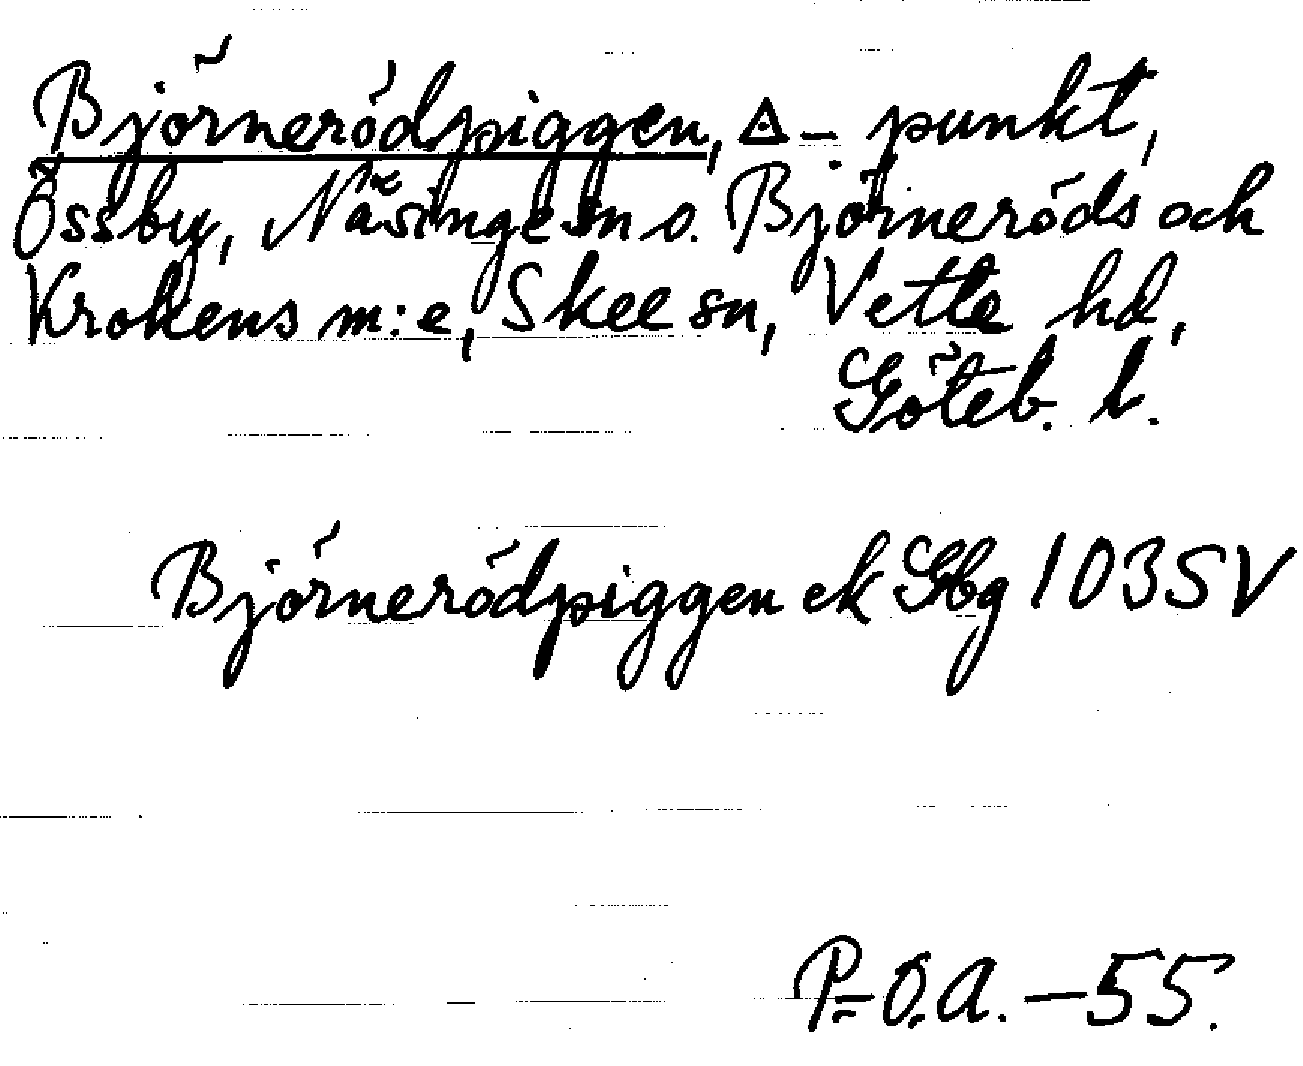 Björnerödpiggen, △ - punkt,
Össby, Näsinge sn o. Björneröds och
Krokens m:e, Skee sn, Vette hd,
Göteb. l.
Björnerödpiggen ek Gbg 103SV
P-O.A. -55.